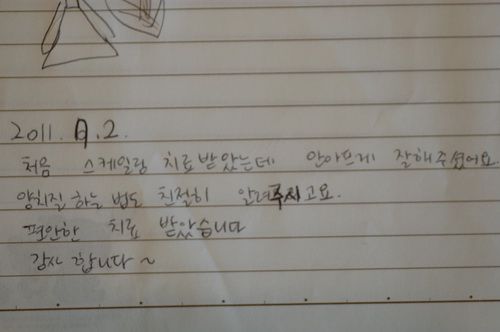 2011. 9. 2.
처음 스케일링 치료 받았는데 안아프게 잘해주셨어요.
양치질 하는 법도 친절히 알려주시고요.
편안한 치료 받았습니다
감사 합니다 ~